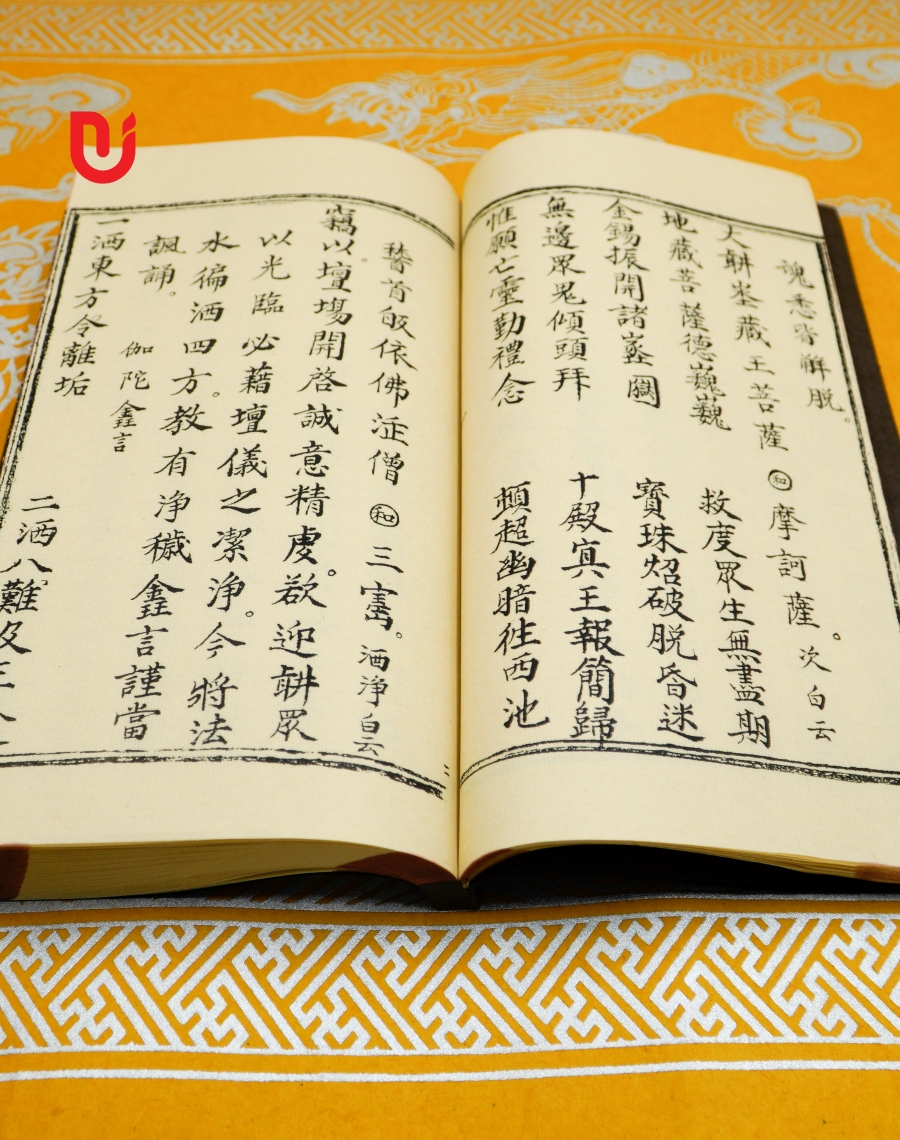 魂悉皆解脱。
大䎶埊藏王菩薩㊀摩訶薩。次白云
地藏菩薩德巍巍 救度眾生無盡期
金錫振開諸 寶珠炤破脱昏迷
無邊眾鬼傾頭拜 十殿冥王報簡歸
惟願亡靈勤禮念 頓超幽暗徃西池
首皈依佛僧 和 三。洒淨白云
竊以。壇場開啓誠意精虔。欲迎䎶眾
以光臨必藉壇儀之潔淨。今將法
水徧洒四方。教有净穢言謹當
諷誦。 伽陀言
一洒東方令離垢 二洒八難及